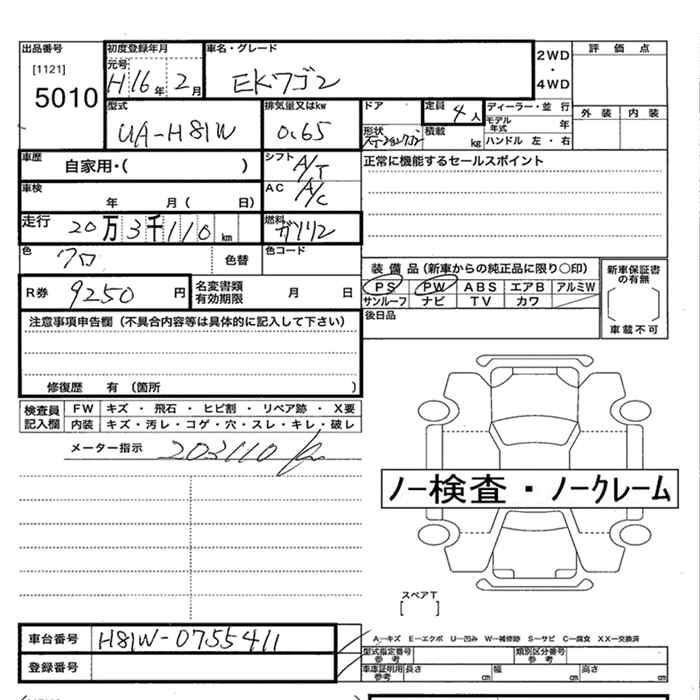 出品番号 初度登録年月 車名・グレード 2WD 評価点
[1121] 元号
5010 H16年2月 EKワゴン ・ 4WD 外装 内装
型式 排気量又はkw ドア 定員 4人 ディーラー・並行
UA-H81W 0.65 形状 積載 kg モデル年式 年
ハンドル 左・右
車歴 自家用・( ) シフト A/T 正常に機能するセールスポイント
車検 年 月( 日) AC A/C
走行 20万3千110km 燃料 ガソリン
色 クロ 色替 色コード
装備品(新車からの純正品に限り○印) 新車保証書の有無
R券 9250円 名変書類有効期限 月 日 PS PW ABS エアB アルミW
サンルーフ ナビ TV カワ
車載不可
注意事項申告欄(不具合内容等は具体的に記入して下さい) 後日品
修復歴 有 (箇所 )
検査員 FW キズ・飛石・ヒビ割・リペア跡・X要
記入欄 内装 キズ・汚レ・コゲ・穴・スレ・キレ・破レ
メーター指示 203110
ノー検査・ノークレーム
スペアT
[ ]
車台番号 H81W-0755411 A-キズ E-エクボ U-凹み W-補修跡 S-サビ C-腐食 XX-交換済
型式指定番号 参考 類別区分番号 参考
登録番号 車庫証明用 参考 長さ cm 幅 cm 高さ cm